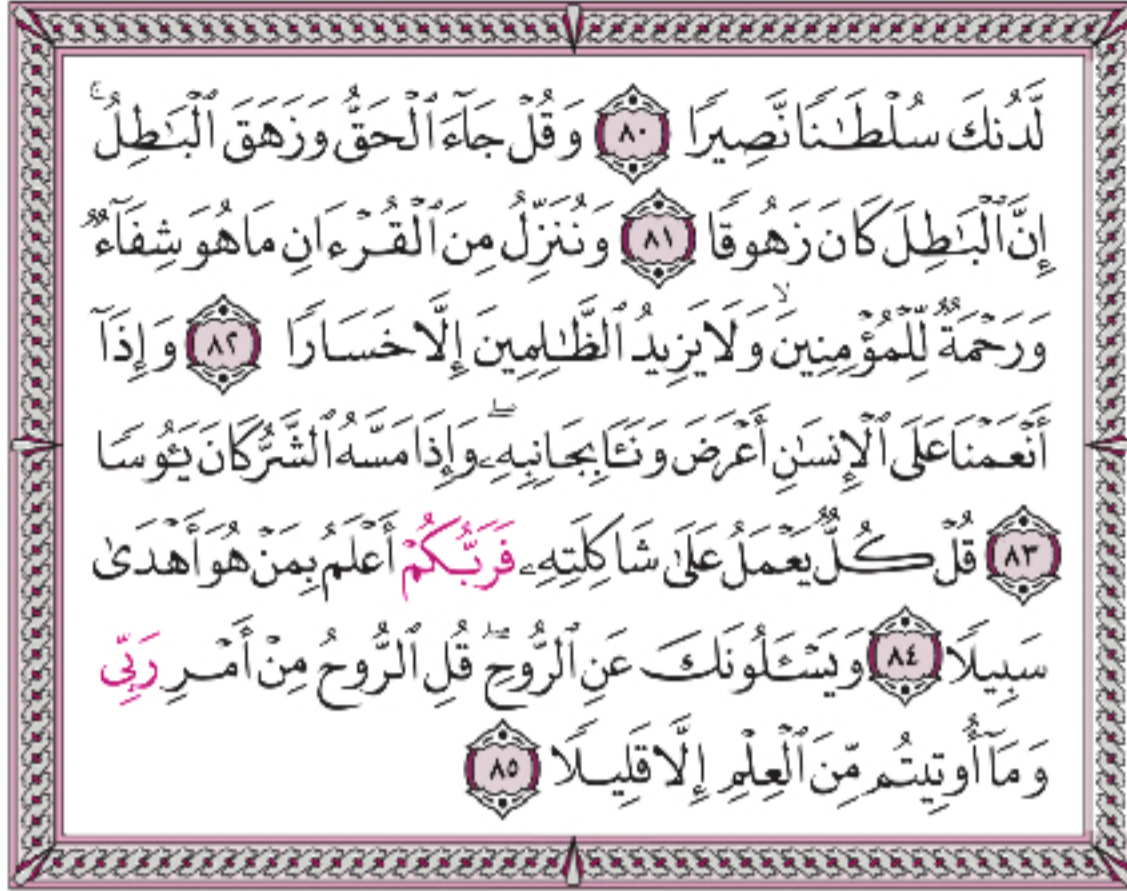 لَّدُنكَ سُلْطَـٰنًا نَّصِيرًا ٨٠ وَقُلْ جَآءَ ٱلْحَقُّ وَزَهَقَ ٱلْبَـٰطِلُ ۚ
إِنَّ ٱلْبَـٰطِلَ كَانَ زَهُوقًا ٨١ وَنُنَزِّلُ مِنَ ٱلْقُرْءَانِ مَا هُوَ شِفَآءٌ
وَرَحْمَةٌ لِّلْمُؤْمِنِينَ ۙ وَلَا يَزِيدُ ٱلظَّـٰلِمِينَ إِلَّا خَسَارًا ٨٢ وَإِذَآ
أَنْعَمْنَا عَلَى ٱلْإِنسَـٰنِ أَعْرَضَ وَنَـَٔا بِجَانِبِهِۦ ۖ وَإِذَا مَسَّهُ ٱلشَّرُّ كَانَ يَـُٔوسًا
٨٣ قُلْ كُلٌّ يَعْمَلُ عَلَىٰ شَاكِلَتِهِۦ فَرَبُّكُمْ أَعْلَمُ بِمَنْ هُوَ أَهْدَىٰ
سَبِيلًا ٨٤ وَيَسْـَٔلُونَكَ عَنِ ٱلرُّوحِ ۖ قُلِ ٱلرُّوحُ مِنْ أَمْرِ رَبِّى
وَمَآ أُوتِيتُم مِّنَ ٱلْعِلْمِ إِلَّا قَلِيلًا ٨٥